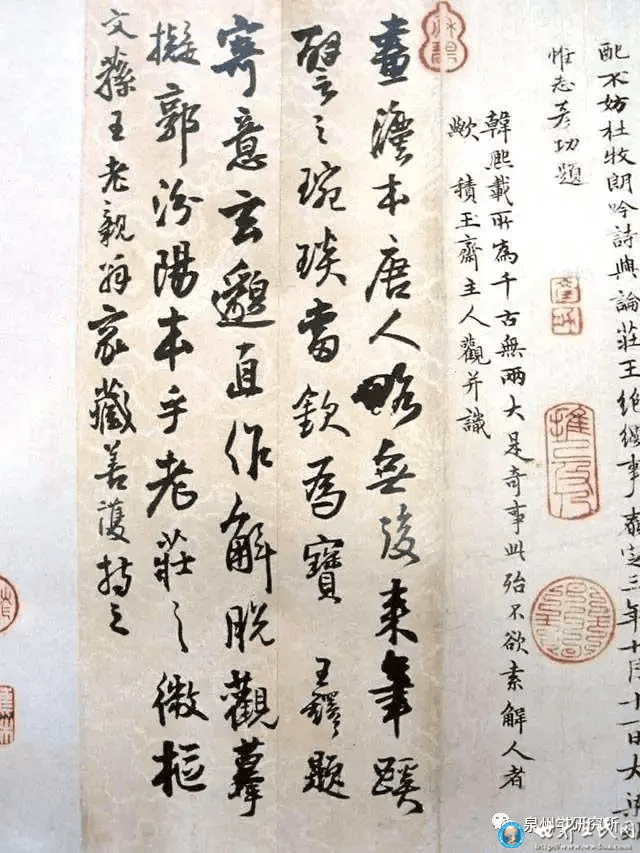 配不妨杜牧朗吟詩與論莊王絕纓事泰定三年十月十一日大梁
惟志彥功題
韓熙載所為千古無兩大是奇事此殆不欲索解人者
歟 積玉齋主人觀并識
畫灋本唐人略無後來筆蹊
譬之琬琰當欽為寶 王鐸題
寄意玄邈直作解脫觀摹
擬郭汾陽本乎老莊之微樞
文蓀王老親翁家藏善護持之
泉州学研究所
世界王氏网